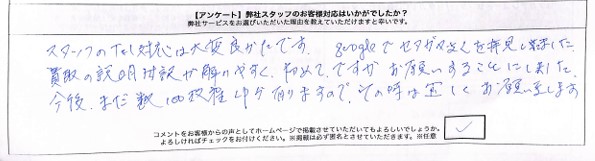 【アンケート】弊社スタッフのお客様対応はいかがでしたか？
弊社サービスをお選びいただいた理由を教えていただけますと幸いです。
スタッフのTel対応は大変良かたです。 googleでセカガメさんを拝見し
買取の説明対談が解りやすく、初めてですがお願いすることにしました。
今後、まだ数100枚程 有りますので、その時は宜しくお願い致します
コメントをお客様からの声としてホームページで掲載させていただいてもよろしいでしょうか。
よろしければチェックをお付けください。※掲載は必ず匿名とさせていただきます。※任意
✓